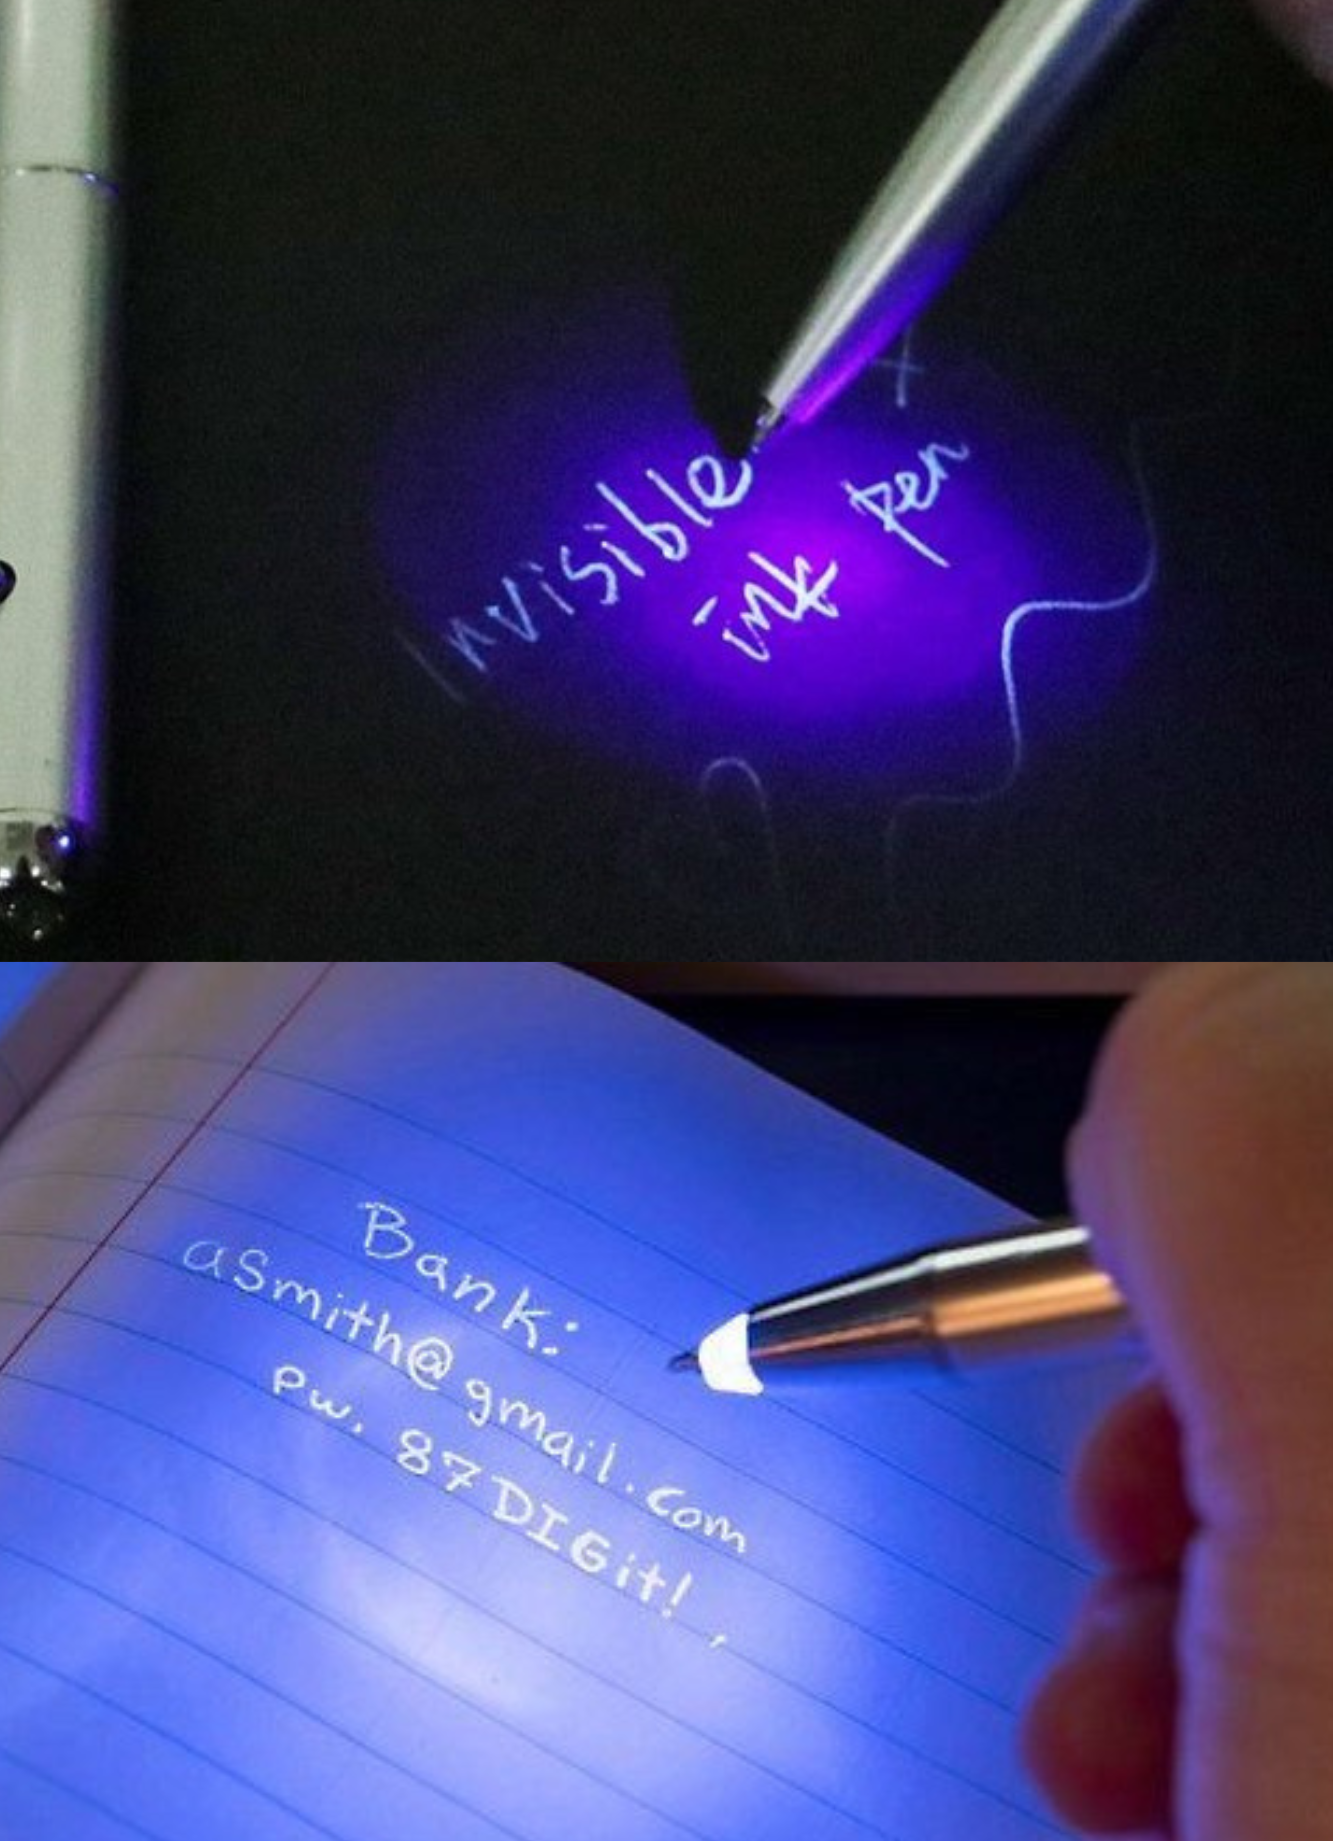 Invisible
ink pen
Bank:
asmith@gmail.com
pw. 87DIGit! ,